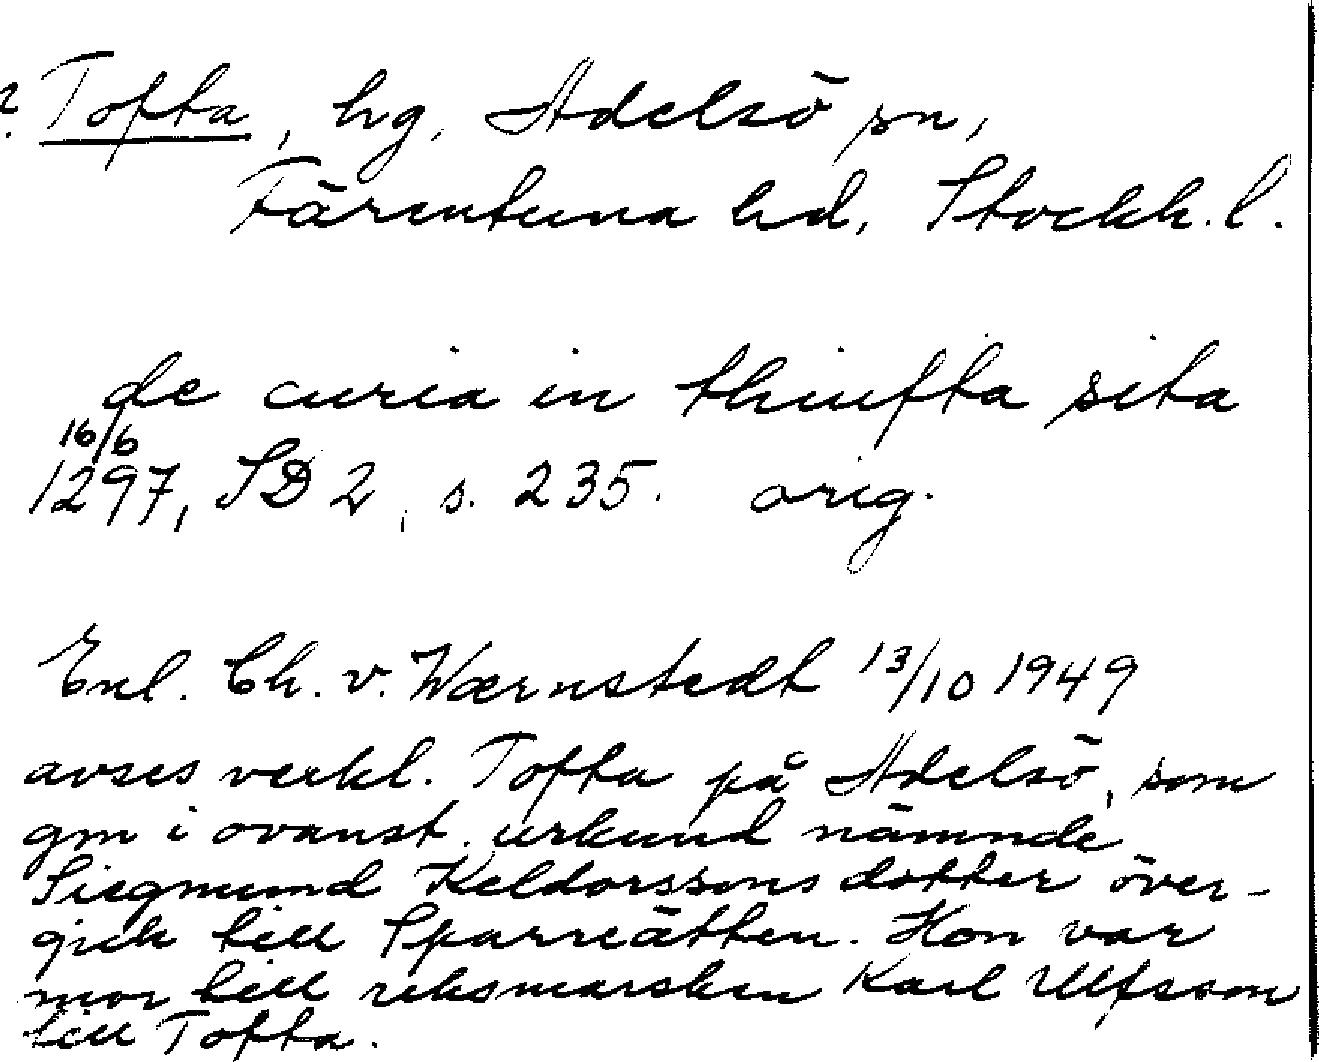 ? Tofta, hg, Adelsö sn,
Färentuna hd, Stockh. l.
de curia in thiufta sita
16/6
1297, SD 2, s. 235. orig.
Enl. Ch. v. Wærnstedt 13/10 1949
avses verkl. Tofta på Adelsö, som
gm i ovanst. urkund nämnde
Siegmund Keldorssons dotter över-
gick till Sparreätten. Hon var
mor till riksmarsken Karl Ulfsson
till Tofta.